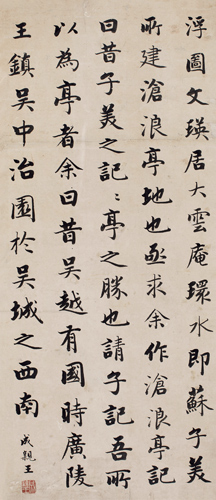 浮圖文瑛居大雲庵環水即蘇子美
所建滄浪亭地也亟求余作滄浪亭記
曰昔子美之記〻亭之勝也請子記吾所
以為亭者余曰昔吳越有國時廣陵
王鎮吳中治園於吳城之西南
成親王